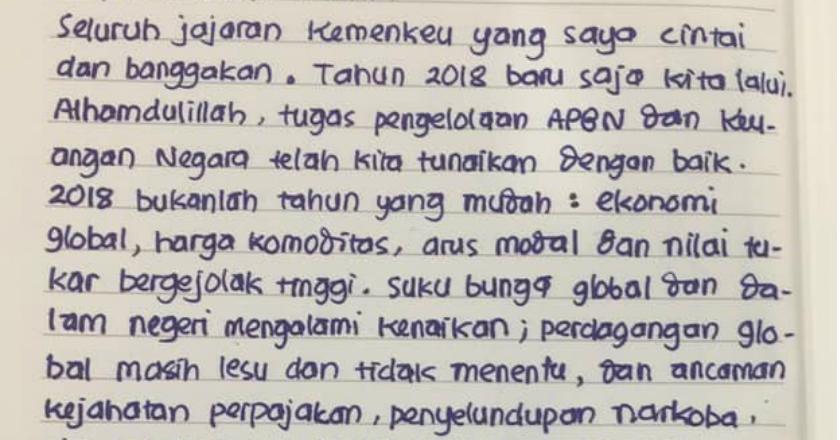 Seluruh jajaran Kemenkeu yang saya cintai
dan banggakan. Tahun 2018 baru saja kita lalui.
Alhamdulillah, tugas pengelolaan APBN dan Keu-
angan Negara telah kita tunaikan dengan baik.
2018 bukanlah tahun yang mudah : ekonomi
global, harga komoditas, arus modal dan nilai tu-
kar bergejolak tinggi. Suku bunga global dan da-
lam negeri mengalami kenaikan; perdagangan glo-
bal masih lesu dan tidak menentu, dan ancaman
kejahatan perpajakan, penyelundupan narkoba,